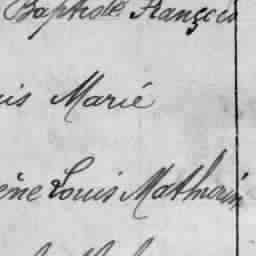 Baptiste François
is Marie
ène Louis Mathurin